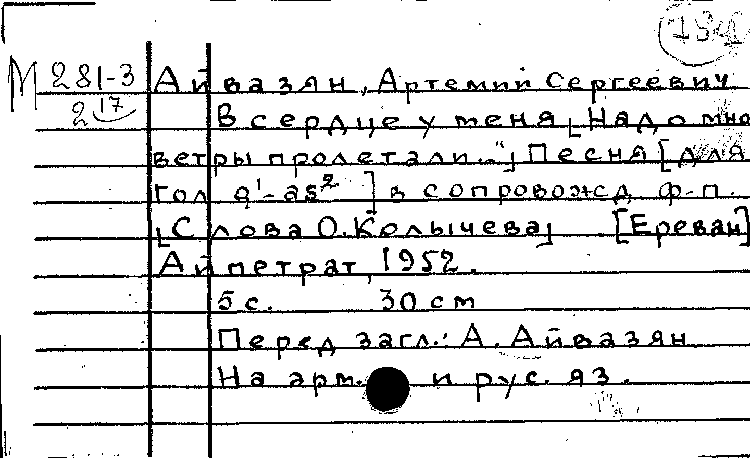 М 281-3 Айвазян, Артемий Сергеевич
2 17 В сердце у меня [Надо мно
ветры пролетали..."] Песня [для
гол a'-as² ] в сопровожд. ф-п.
[Слова О. Колычева] [Ереван]
Айпетрат, 1952.
5 с. 30 см
Перед загл.: А. Айвазян
На арм. и рус. яз.